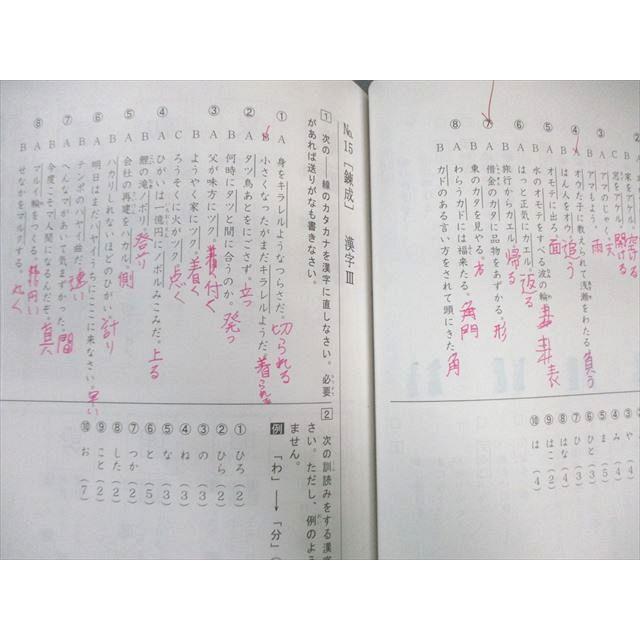 ② A 家をアケる。 空ける
B 窓をアケる。 開ける
③ A アマのじゃく。 天
B アマもよう。 雨
④ A オウた子に教えられて浅瀬をわたる。 負う
B はん人をオウ。 追う
⑤ A オモテに出ろ。 面
B 水のオモテをすべる波の輪。 表
⑥ A はっと正気にカエル。 返る
B 旅行からカエル。 帰る
⑦ A 借金のカタに品物をあずかる。 形
B 東のカタを見やる。 方
⑧ A わらうカドには福来たる。 角 門
B カドのある言い方をされて頭にきた。 角
や(
み(
ま(5
ひと(3
ひ(3)
⑧ はな(4)
⑨ はこ(2)
⑩ は(4)
No.15 [錬成] 漢字Ⅲ
1 次の――線のカタカナを漢字に直しなさい。必要
があれば送りがなも書きなさい。
① A 身をキラレルようなつらさだ。 切られる
B 小さくなったがまだキラレルようだ。 着られる
② A タツ鳥あとをにごさず。 立つ
B 何時にタツと間に合うのか。 発つ
③ A 父が味方にツク。 付く
B ようやく家にツク。 着く
C ろうそくに火がツク。 点く
④ A ひがいは一億円にノボルみこみだ。 上る
B 鯉の滝ノボリ。 登り
⑤ A 会社の再建をハカル。 測
B ハカリしれないほどのひがい。 計り
⑥ A 明日はまだハヤイうちにここに来なさい。 早い
B テンポのハヤイ曲だ。 速い
⑦ A へんなマがあいて気まずかった。 間
B 今度こそマ人間になるんだぞ。 真
⑧ A マルイ輪をつくる。 円い
B せなかをマルクする。 丸く
2 次の訓読みをする漢字
さい。ただし、例のよう
ません。
例 「わ」→「分」(
① ひろ(2)
② ひら(2)
③ の(3)
④ ね(3)
⑤ な(3)
⑥ と(5)
⑦ つか(2)
⑧ した(2)
⑨ こと(2)
⑩ お(7)